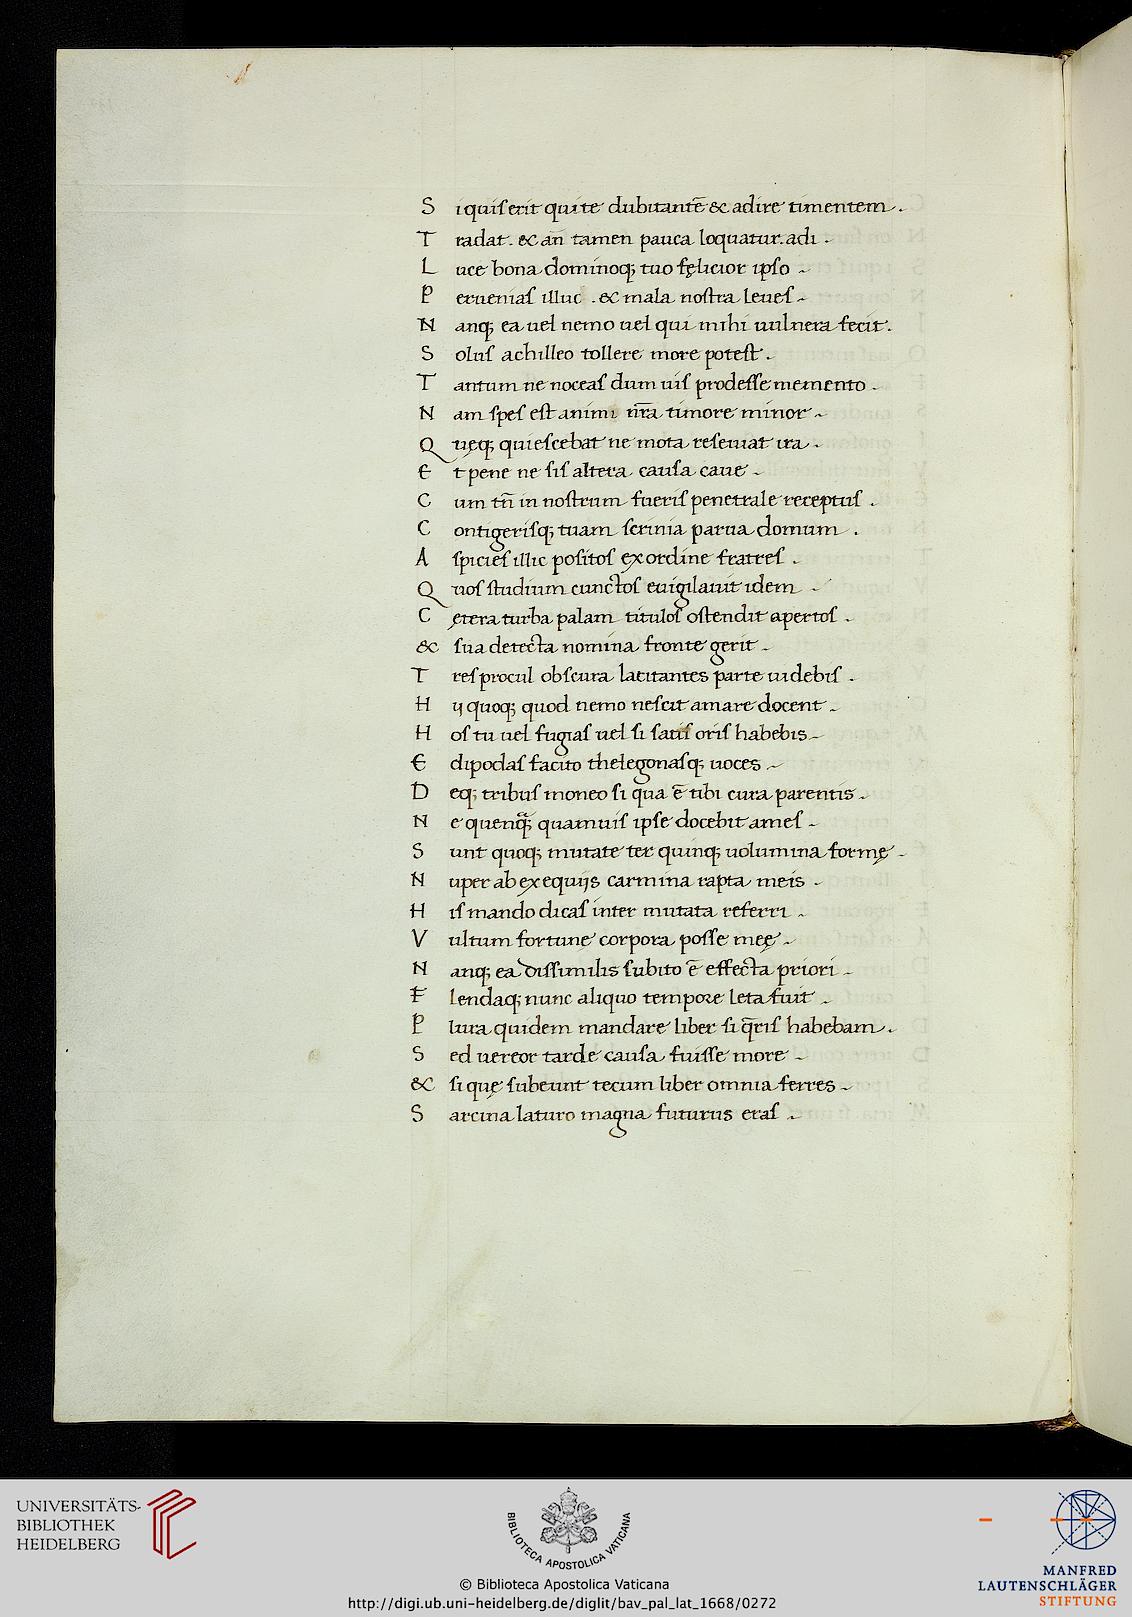 S iquiſ erit qui te dubitantē & adire timentem.
T radat. & añ tamen pauca loquatur. adi.
L uce bona dominoq; tuo fęlicior ipſo.
P eruenias illuc. & mala noſtra leueſ.
N anq; ea uel nemo uel qui mihi uulnera fecit.
S oluſ achilleo tollere more poteſt.
T antum ne noceaſ dum uiſ prodeſſe memento.
N am ſpeſ eſt animi nr̄a timore minor.
Q uęq; quieſcebat ne mota reſeuiat ira.
E t pene ne ſiſ altera cauſa caue.
C um tñ in noſtrum fueriſ penetrale receptuſ.
C ontigeriſq; tuam ſcrinia parua domum.
A ſpicieſ illic poſitoſ ex ordine fratreſ.
Q uoſ ſtudium cunctoſ euigilauit idem.
C ętera turba palam tituloſ oſtendit apertoſ.
& ſua detecta nomina fronte gerit.
T reſ procul obſcura latitantes parte uidebiſ.
H ij quoq; quod nemo neſcit amare docent.
H oſ tu uel fugiaſ uel ſi ſatiſ oris habebis.
E dipodaſ facito thelegonaſq; uoces.
D eq; tribuſ moneo ſi qua ē tibi cura parentis.
N e quenq̃; quamuis ipſe docebit ameſ.
S unt quoq; mutate ter quinq; uolumina formę.
N uper ab exequijs carmina rapta meis.
H iſ mando dicaſ inter mutata referri.
V ultum fortunę corpora poſſe meę.
N anq; ea diſſimilis ſubito ē effecta priori.
F lendaq; nunc aliquo tempore leta fuit.
P lura quidem mandare liber ſi q̄riſ habebam.
S ed uereor tarde cauſa fuiſſe more.
& ſi quę ſubeunt tecum liber omnia ferres.
S arcina laturo magna futurus eraſ.
UNIVERSITÄTS-
BIBLIOTHEK
HEIDELBERG
BIBLIOTECA APOSTOLICA VATICANA
MANFRED
LAUTENSCHLÄGER
STIFTUNG
© Biblioteca Apostolica Vaticana
http://digi.ub.uni-heidelberg.de/diglit/bav_pal_lat_1668/0272